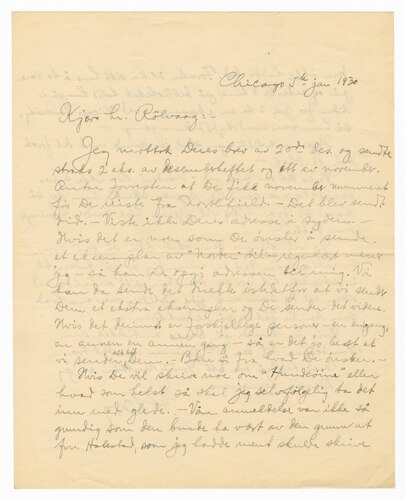 Chicago 5te jan 1930
Kjære hr. Rölvaag: -
Jeg mottok Deres brev av 20de des. og sendte
straks 2 eks. av desemberheftet og ett av november.
Antar forresten at De fikk november nummeret
för De reiste fra Northfield. - Det blev sendt
did. - Visste ikke Deres adresse i syden.
Hvis det er noen som De önsker å sende
et eksemplar av "Norden" til - regulært mener
jeg - så kan De opgi adressen til mig. Vi
kan da sende det direkte istedetfor at vi sender
Dem et ekstra eksemplar og De sender det videre.
Hvis det derimot er forskjellige personer - en engang,
en annen en annen gang - så er det jo best at
vi sender alt till Dem. - Bare si fra hvad De önsker. -
Hvis De vil skrive noe om "Hundeöine" eller
hvad som helst så skal jeg selvfölgelig ta det
inn med glede. - Vår anmeldelse var ikke så
grundig som den burde ha vært av den grunn at
fru Hakestad, som jeg hadde ment skulde skrive